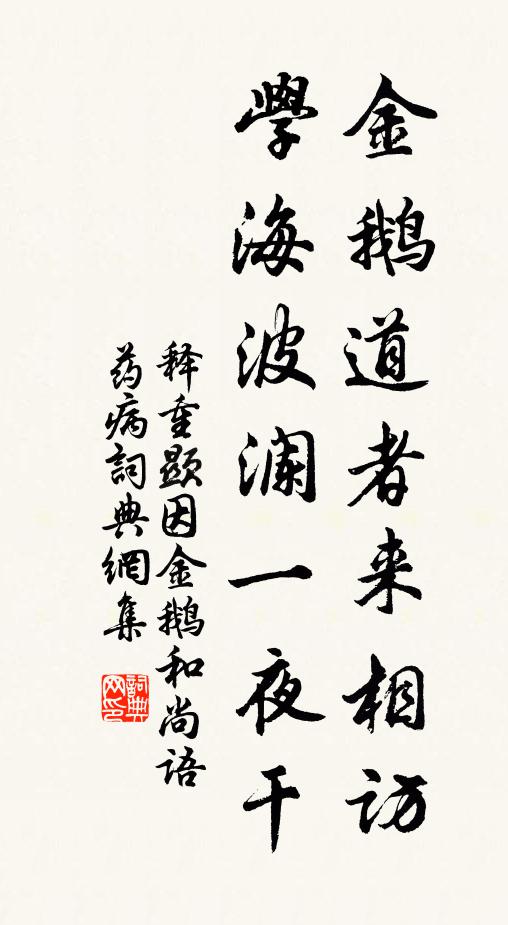 金鹅道者来相访
學海波澜一夜干
释重顯因金鹅和尚语
药病詞典網集
詞典
网印